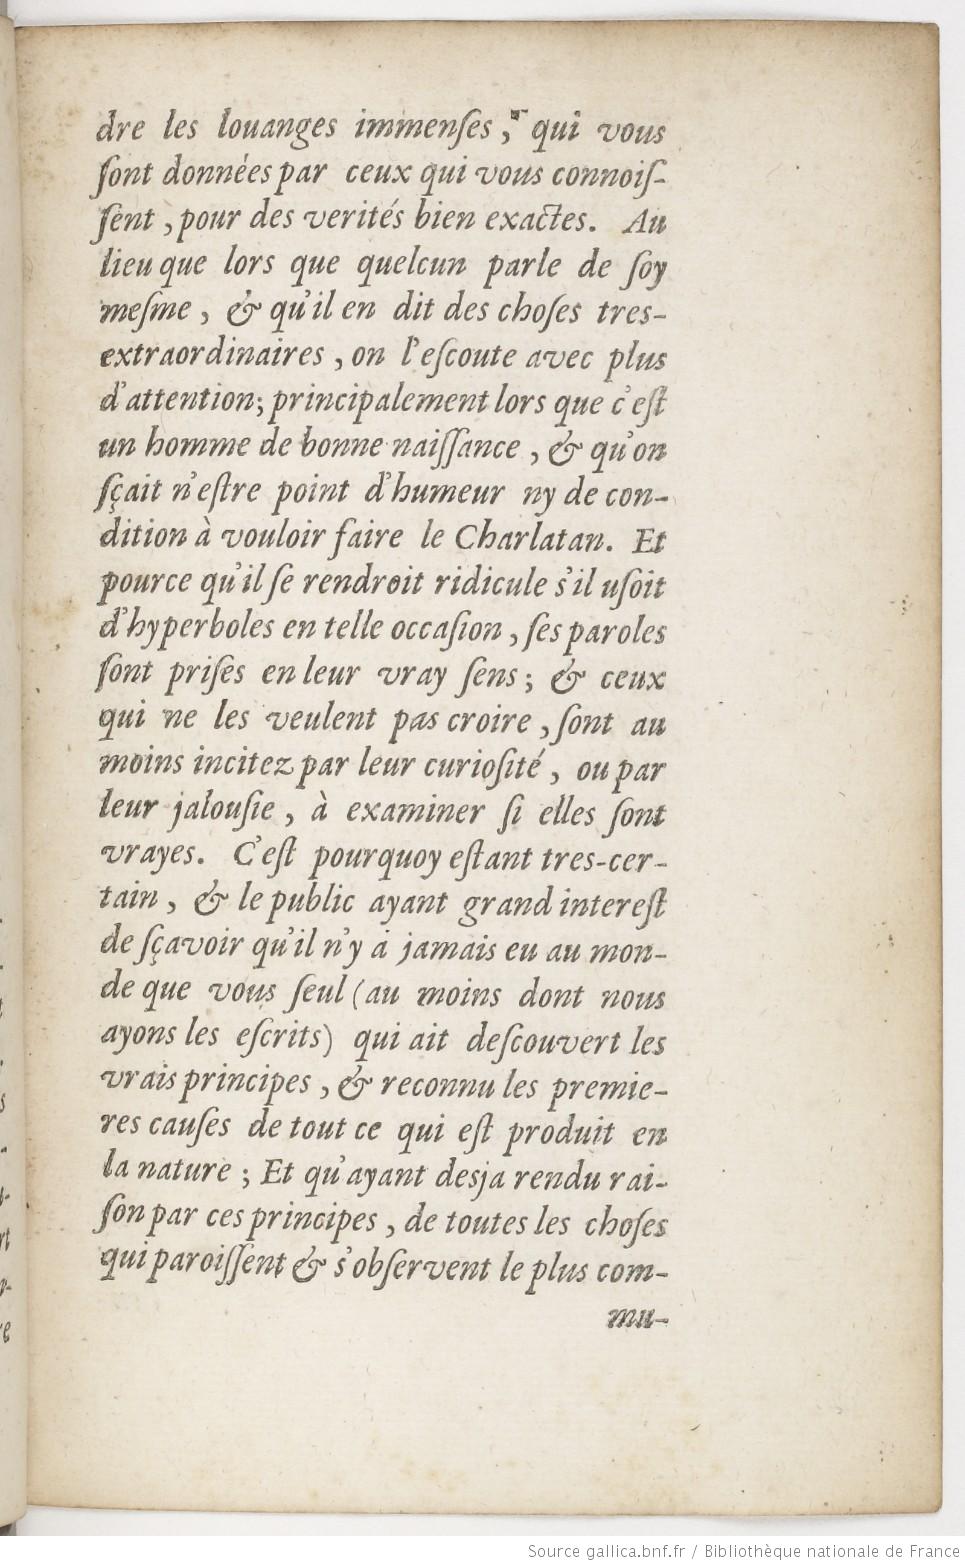 dre les louanges immenſes, qui vous
ſont données par ceux qui vous connoiſ-
ſent, pour des verités bien exactes. Au
lieu que lors que quelcun parle de ſoy
meſme, & qu'il en dit des choſes tres-
extraordinaires, on l'eſcoute avec plus
d'attention; principalement lors que c'eſt
un homme de bonne naiſſance, & qu'on
ſçait n'eſtre point d'humeur ny de con-
dition à vouloir faire le Charlatan. Et
pource qu'il ſe rendroit ridicule s'il uſoit
d'hyperboles en telle occaſion, ſes paroles
ſont priſes en leur vray ſens; & ceux
qui ne les veulent pas croire, ſont au
moins incitez par leur curioſité, ou par
leur jalouſie, à examiner ſi elles ſont
vrayes. C'eſt pourquoy eſtant tres-cer-
tain, & le public ayant grand intereſt
de ſçavoir qu'il n'y a jamais eu au mon-
de que vous ſeul (au moins dont nous
ayons les eſcrits) qui ait deſcouvert les
vrais principes, & reconnu les premie-
res cauſes de tout ce qui eſt produit en
la nature; Et qu'ayant desja rendu rai-
ſon par ces principes, de toutes les choſes
qui paroiſſent & s'obſervent le plus com-
mu-
Source gallica.bnf.fr / Bibliothèque nationale de France